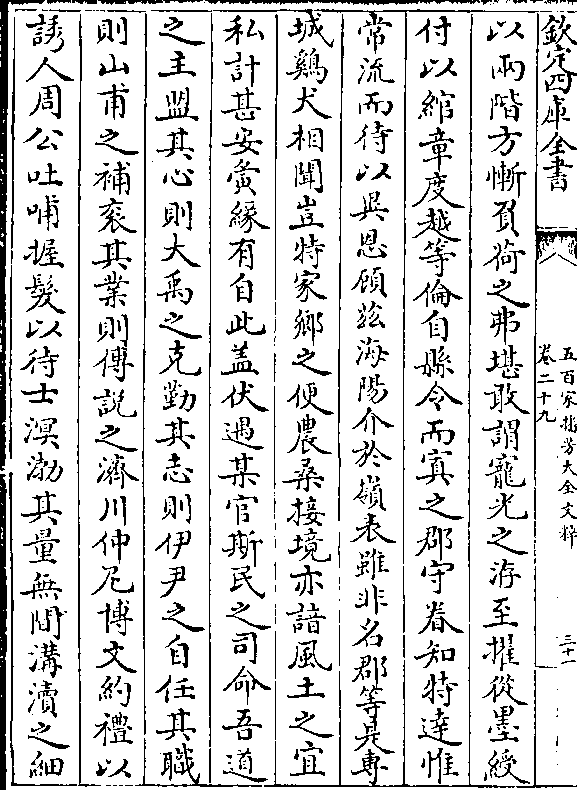 欽定四庫全書
五百家播芳大全文粹
卷二十九
三十一
以兩階方慚負荷之弗堪敢謂寵光之洊至擢從墨綬
付以綰章度越等倫自縣令而寘之郡守眷知特達惟
常流而待以異恩顧兹海陽介於嶺表雖非名郡等是專
城鷄犬相聞豈特家鄉之便農桑接境亦諳風土之宜
私計甚安夤緣有自此盖伏遇某官斯民之司命吾道
之主盟其心則大禹之克勤其志則伊尹之自任其職
則山甫之補衮其業則傅説之濟川仲尼博文約禮以
誘人周公吐哺握髮以待士溟渤其量無間溝瀆之細